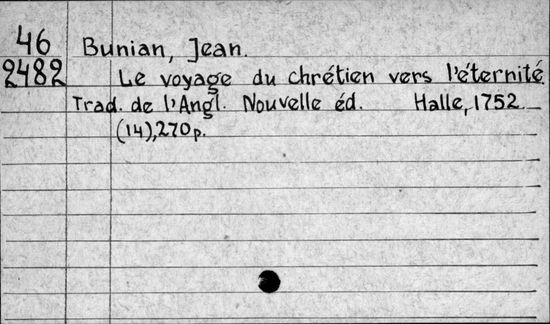 46
2482
Bunian, Jean.
Le voyage du chrétien vers l'éternité.
Trad. de l'Angl. Nouvelle éd. Halle, 1752.
(14), 270 p.